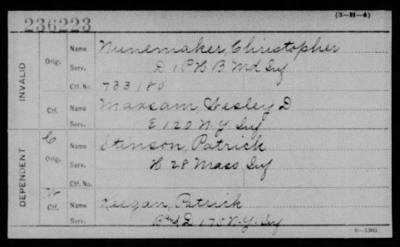 (3-H-4)
236223
INVALID
Orig. Name Nunemaker, Christopher
Serv. D 1 P H B B Md Inf
Ctf. No. 733180
Ctf. Name Marsam, Lesley D
Serv. E 120 N.Y. Inf
DEPENDENT
C
Orig. Name Stinson, Patrick
Serv. H. 28 Mass Inf
Ctf. No.
Ctf. Name Keegan, Patrick
Serv. D 170 N.Y. Inf